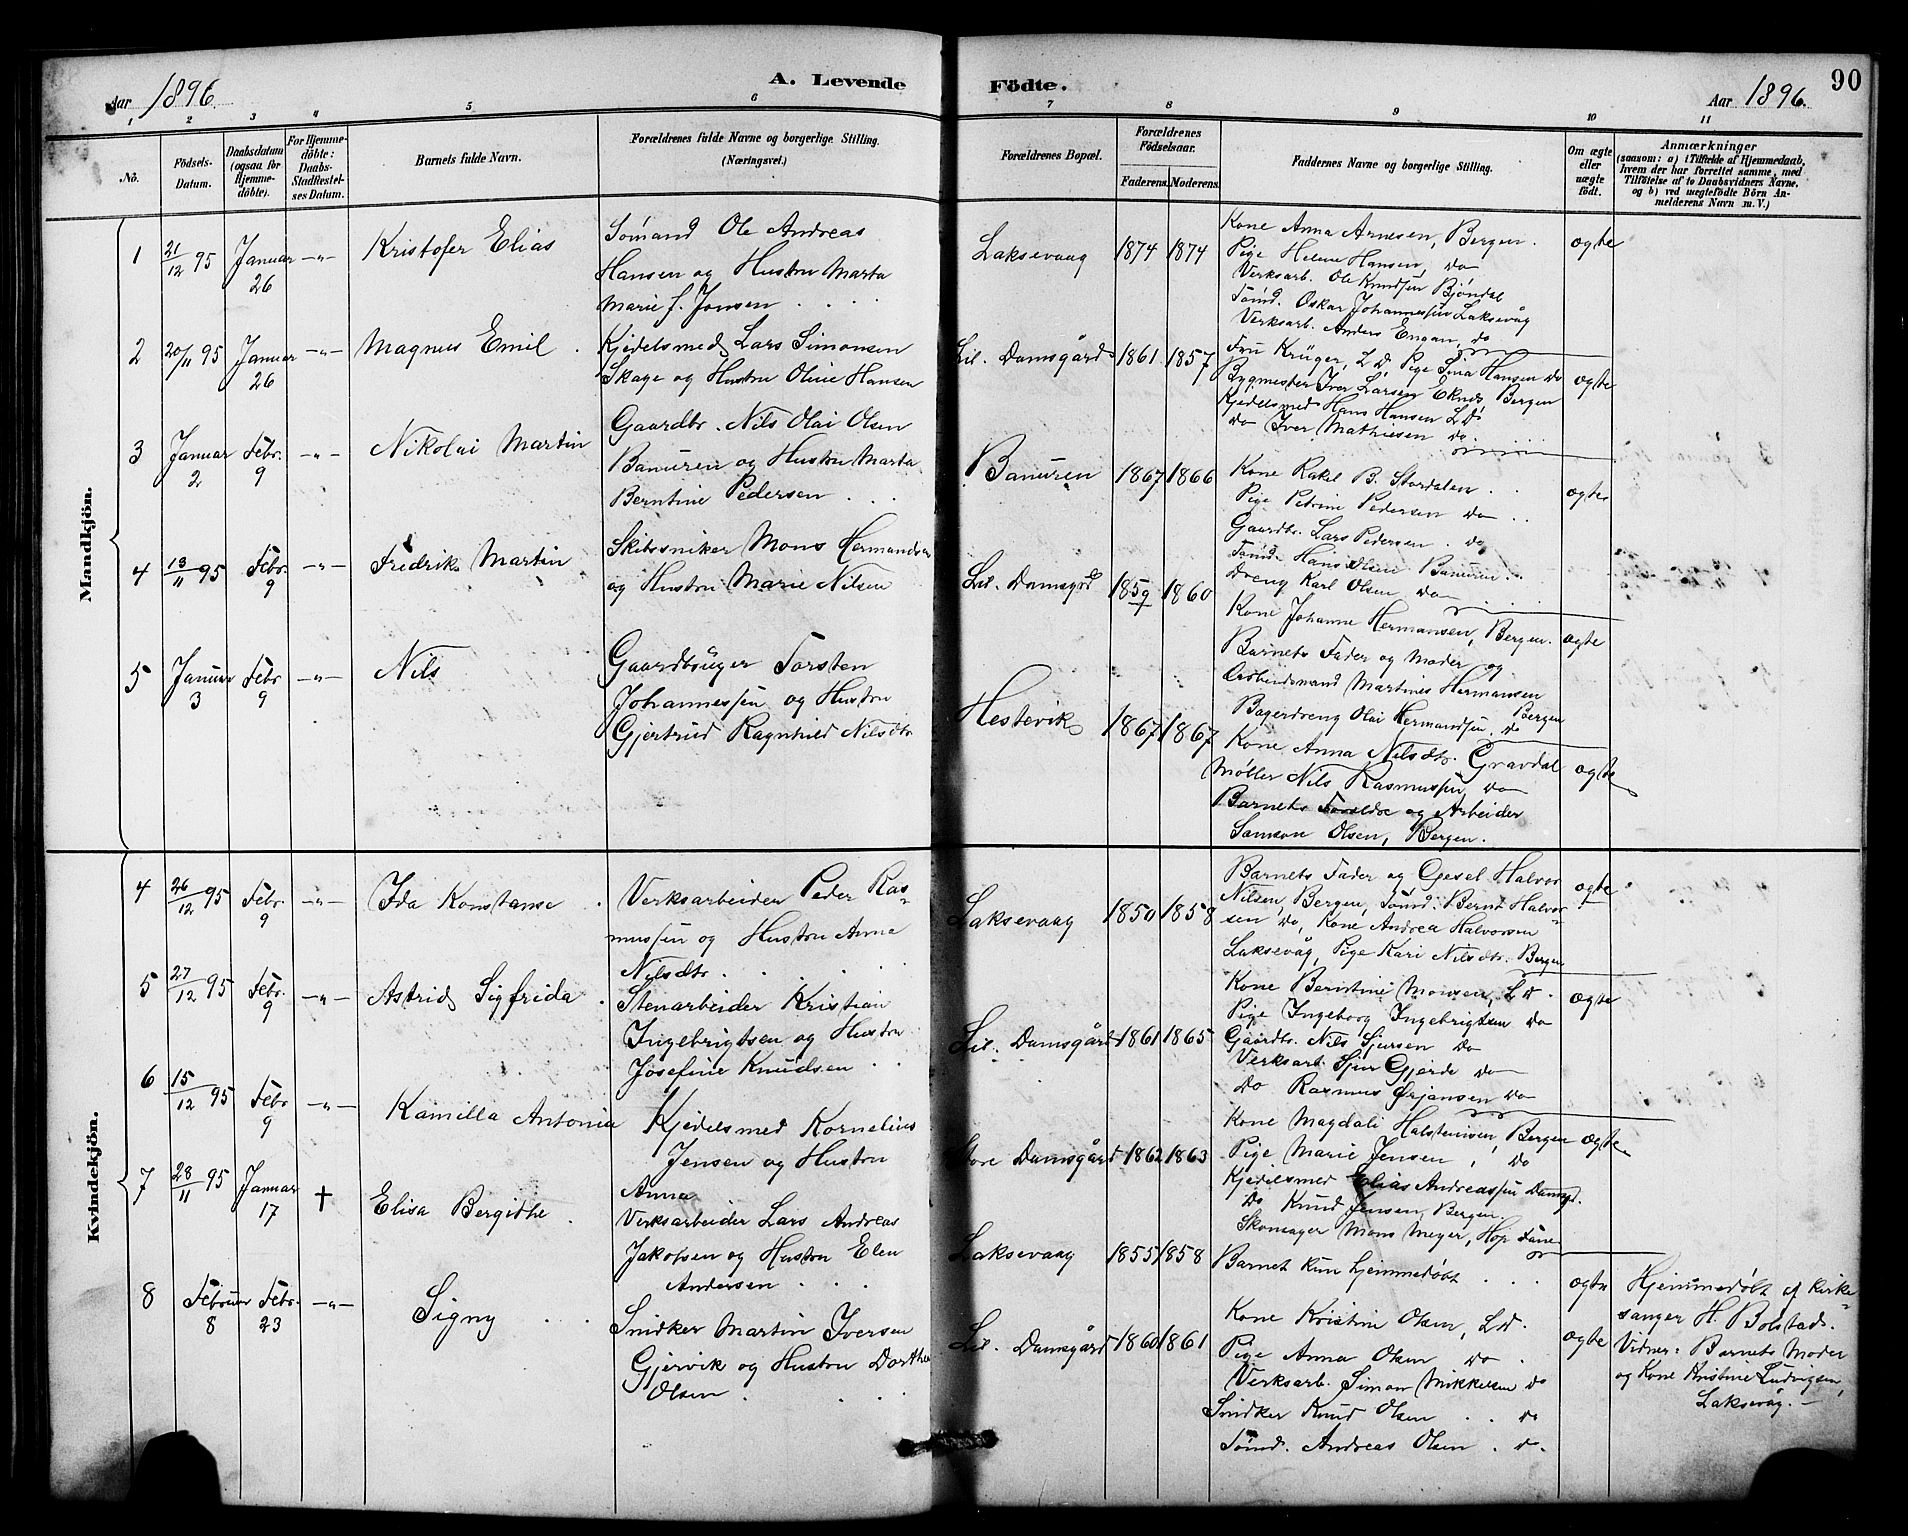 Aar 1896.
A. Levende
Födte.
Aar 1896.
90
1 2 3 4 5 6 7 8 9 10 11
No.
Födsels-
Datum.
Daabsdatum
(ogsaa for
Hjemme-
döbte).
For Hjemme-
döbte:
Daabs-
Stadfæstel-
ses Datum.
Barnets fulde Navn.
Forældrenes fulde Navne og borgerlige Stilling.
(Næringsvei.)
Forældrenes Bopæl.
Forældrenes
Födselsaar.
Faderens.
Moderens.
Faddernes Navne og borgerlige Stilling.
Om ægte
eller
uægte
födt.
Anmærkninger
(saasom: a) i Tilfælde af Hjemmedaab,
hvem der har forrettet samme, med
Tilföielse af to Daabsvidners Navne,
og b) ved uegtefödte Börn An-
melderens Navn m. V.)
Mandkjön.
1
21/12 95
Januar
26
-"-
Kristofer Elias
Sömand Ole Andreas
Hansen og Hustru Marta
Marie f. Jonsen
Laksevaag
1874
1874
Kone Anna Arnesen, Bergen.
Pige Helene Hansen, do
Verksarb. Ole Knudsen Bjöndal
Sömd. Oskar Johannessen Laksevåg
Verksarb. Anders Engan, do
ogte
2
20/11 95
Januar
26
-"-
Magnus Emil
Kjedelsmed Lars Simonsen
Skage og Hustru Oline Hansen
Lil. Damsgård
1861
1857
Fru Krüger, L.D, Pige Sina Hansen do
Bygmester Iver Larsen Eknes Bergen
Kjedelsmed Hans Hansen L.D
do Iver Mathiesen do
ogte
3
Januar
2
Febr.
9
-"-
Nikolai Martin
Gaardbr. Nils Olai Olsen
Banuren og Hustru Marta
Berntine Pedersen
Banuren
1867
1866
Kone Rakel B. Stordalen
Pige Petrine Pedersen do
Gaardbr. Lars Pedersen do
Sömd. Hans Olsen Banuren
Dreng Karl Olsen do
ogte
4
13/11 95
Febr.
9
-"-
Fredrik Martin
Skibssniker Mons Hermandsen
og Hustru Marie Nilsen
Lil. Damsgrd
1859
1860
Kone Johanne Hermansen, Bergen.
Barnets Fader og Moder og
Arbeidsmand Martines Hermansen
Bergen
Bagerdreng Olai Hermandsen, do
ogte
5
Januar
3
Febr
9
-"-
Nils
Gaardbruger Torsten
Johannessen og Hustru
Gjertrud Ragnhild Nilsdtr
Hestevik
1867
1867
Kone Anna Nilsdtr. Gravdal
Møller Nils Rasmussen do
Barnets Foreldre og Arbeider
Samson Olsen, Bergen.
ogte
Kvindekjön.
4
26/12 95
Febr.
9
-"-
Ida Konstanse
Verksarbeider Peder Ras-
mussen og Hustru Anna
Nilsdtr.
Laksevaag
1850
1858
Barnets Fader og Gesel Halvor
Nilsen, Bergen, Sömd. Bernt Halvor
sen do, Kone Andrea Halvorsen
Laksevåg, Pige Kari Nilsdtr. Bergen
ogte
5
27/12 95
Febr.
9
-"-
Astrid Sigfrida
Stenarbeider Kristian
Ingebrigtsen og Hustru
Josefine Knudsen
Lil. Damsgård
1861
1865
Kone Berntine Monsen, L.D.
Pige Ingeborg Ingebrigtsen do
Gaardbr. Nils Sjursen do
Verksarb. Sjur Gjerde do
do Rasmus Ørjansen do
ogte
6
15/12 95
Febr
9
-"-
Kamilla Antonia
Kjedelsmed Kornelius
Jensen og Hustru
Anna
Store Damsgård
1862
1863
Kone Magdali Halsteinsen, Bergen
Pige Marie Jensen, do
Kjedelsmed Elias Andreassen Damsgd.
do Knud Jensen, Bergen.
Skomager Mons Meyer, Hop Fane
ogte
7
28/11 95
Januar
17
†
Elisa Bergithe
Verksarbeider Lars Andreas
Jakobsen og Hustru Elen
Andersen
Laksevaag
1855
1858
Barnet kun hjemmedøbt
ogte
Hjemmedøbt af Kirke-
sanger H. Bolstad.
Vidner: Barnets Moder
og Kone Kristine Ludvigsen,
Laksevåg.
8
Februar
8
Febr.
23
-"-
Signy
Snidker Martin Iversen
Gjervik og Hustru Dorthea
Olsen
Lil. Damsgård
1860
1861
Kone Kristine Olsen, L.D.
Pige Anna Olsen do
Verksarb. Simon Mikkelsen do
Snidker Knud Olsen do
Sömd. Andreas Olsen do.
ogte